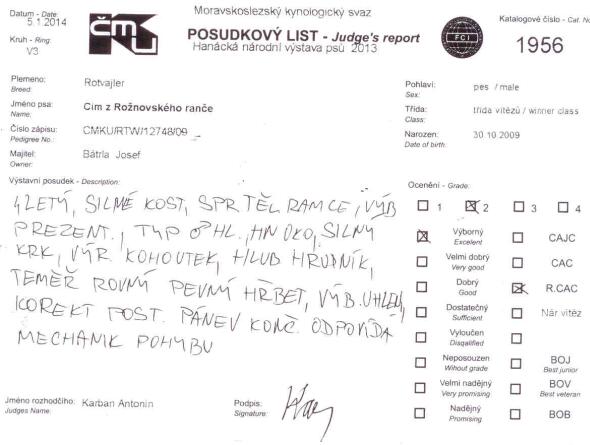 Datum - Date: 5.1.2014
Kruh - Ring: V3
ČMKU
Moravskoslezský kynologický svaz
POSUDKOVÝ LIST - Judge's report
Hanácká národní výstava psů 2013
FCI
Katalogové číslo - Cat. No
1956
Plemeno: Rotvajler
Breed:
Jméno psa: Cim z Rožnovského ranče
Name:
Číslo zápisu: CMKU/RTW/12748/09
Pedigree No.:
Majitel: Bátrla Josef
Owner:
Pohlaví: pes / male
Sex:
Třída: třída vítězů / winner class
Class:
Narozen: 30.10.2009
Date of birth:
Výstavní posudek - Description:
4LETÝ, SILNÉ KOST, SPR TĚL RAMCE, VÝB
PREZENT., TYP ♂ HL., HN OKO, SILNÝ
KRK, VÝR KOHOUTEK, HLUB HRUDNÍK,
TEMĚŘ ROVNÝ PEVNÝ HŘBET, VÝB. UHLENÍ,
KOREKT POST. PÁNEV KONČ. ODPOVÍDÁ
MECHANIK POHYBU
Ocenění - Grade:
1 2 3 4
Výborný CAJC
Excelent
Velmi dobrý CAC
Very good
Dobrý R.CAC
Good
Dostatečný Nár vítěz
Sufficient
Vyloučen
Disqalified
Neposouzen BOJ
Wihout grade Best junior
Velmi nadějný BOV
Very promising Best veteran
Nadějný BOB
Promising
Jméno rozhodčího: Karban Antonin
Judges Name:
Podpis:
Signature: